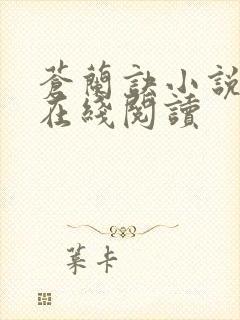 蒼蘭訣小説
在綫閱讀
葉卡